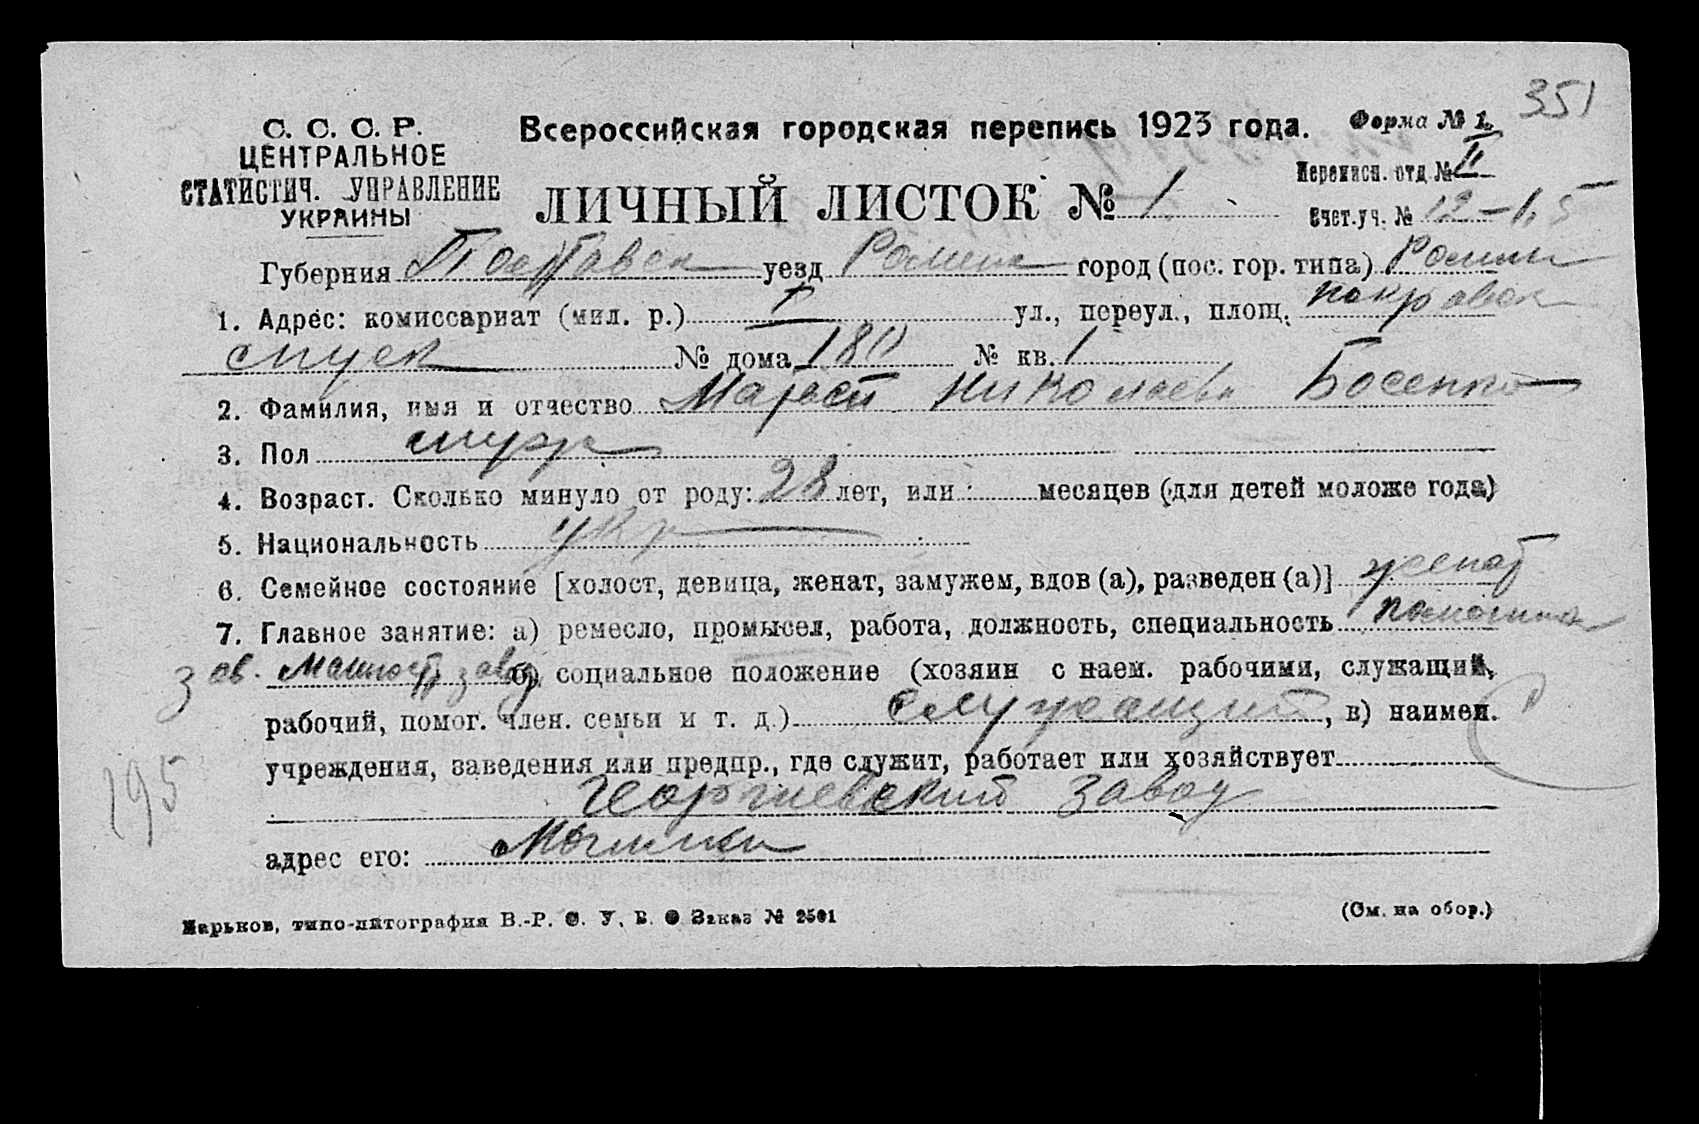 351
С. С. С. Р.
ЦЕНТРАЛЬНОЕ
СТАТИСТИЧ. УПРАВЛЕНИЕ
УКРАИНЫ
Всероссийская городская перепись 1923 года.
Форма № 1.
Переписн. отд № II
ЛИЧНЫЙ ЛИСТОК № 1
Счет.уч. № 12-1,5
Губерния Полтавск уезд Роменск город (пос. гор. типа) Ромны
1. Адрес: комиссариат (мил. р.) I ул., переул., площ. Покровск
спуск № дома 180 № кв. 1
2. Фамилия, имя и отчество Николаев Босенко
3. Пол муж
4. Возраст. Сколько минуло от роду: 28 лет, или месяцев (для детей моложе года)
5. Национальность укр
6. Семейное состояние [холост, девица, женат, замужем, вдов (а), разведен (а)] женат
7. Главное занятие: а) ремесло, промысел, работа, должность, специальность помощник
зав. завод б) социальное положение (хозяин с наем. рабочими, служащий,
рабочий, помог. член. семьи и т. д.) служащий, в) наимен.
учреждения, заведения или предпр., где служит, работает или хозяйствует
Георгиевский завод
195
адрес его:
Харьков, типо-литография В.-Р. С. У, В. О Заказ № 2501
(См. на обор.)